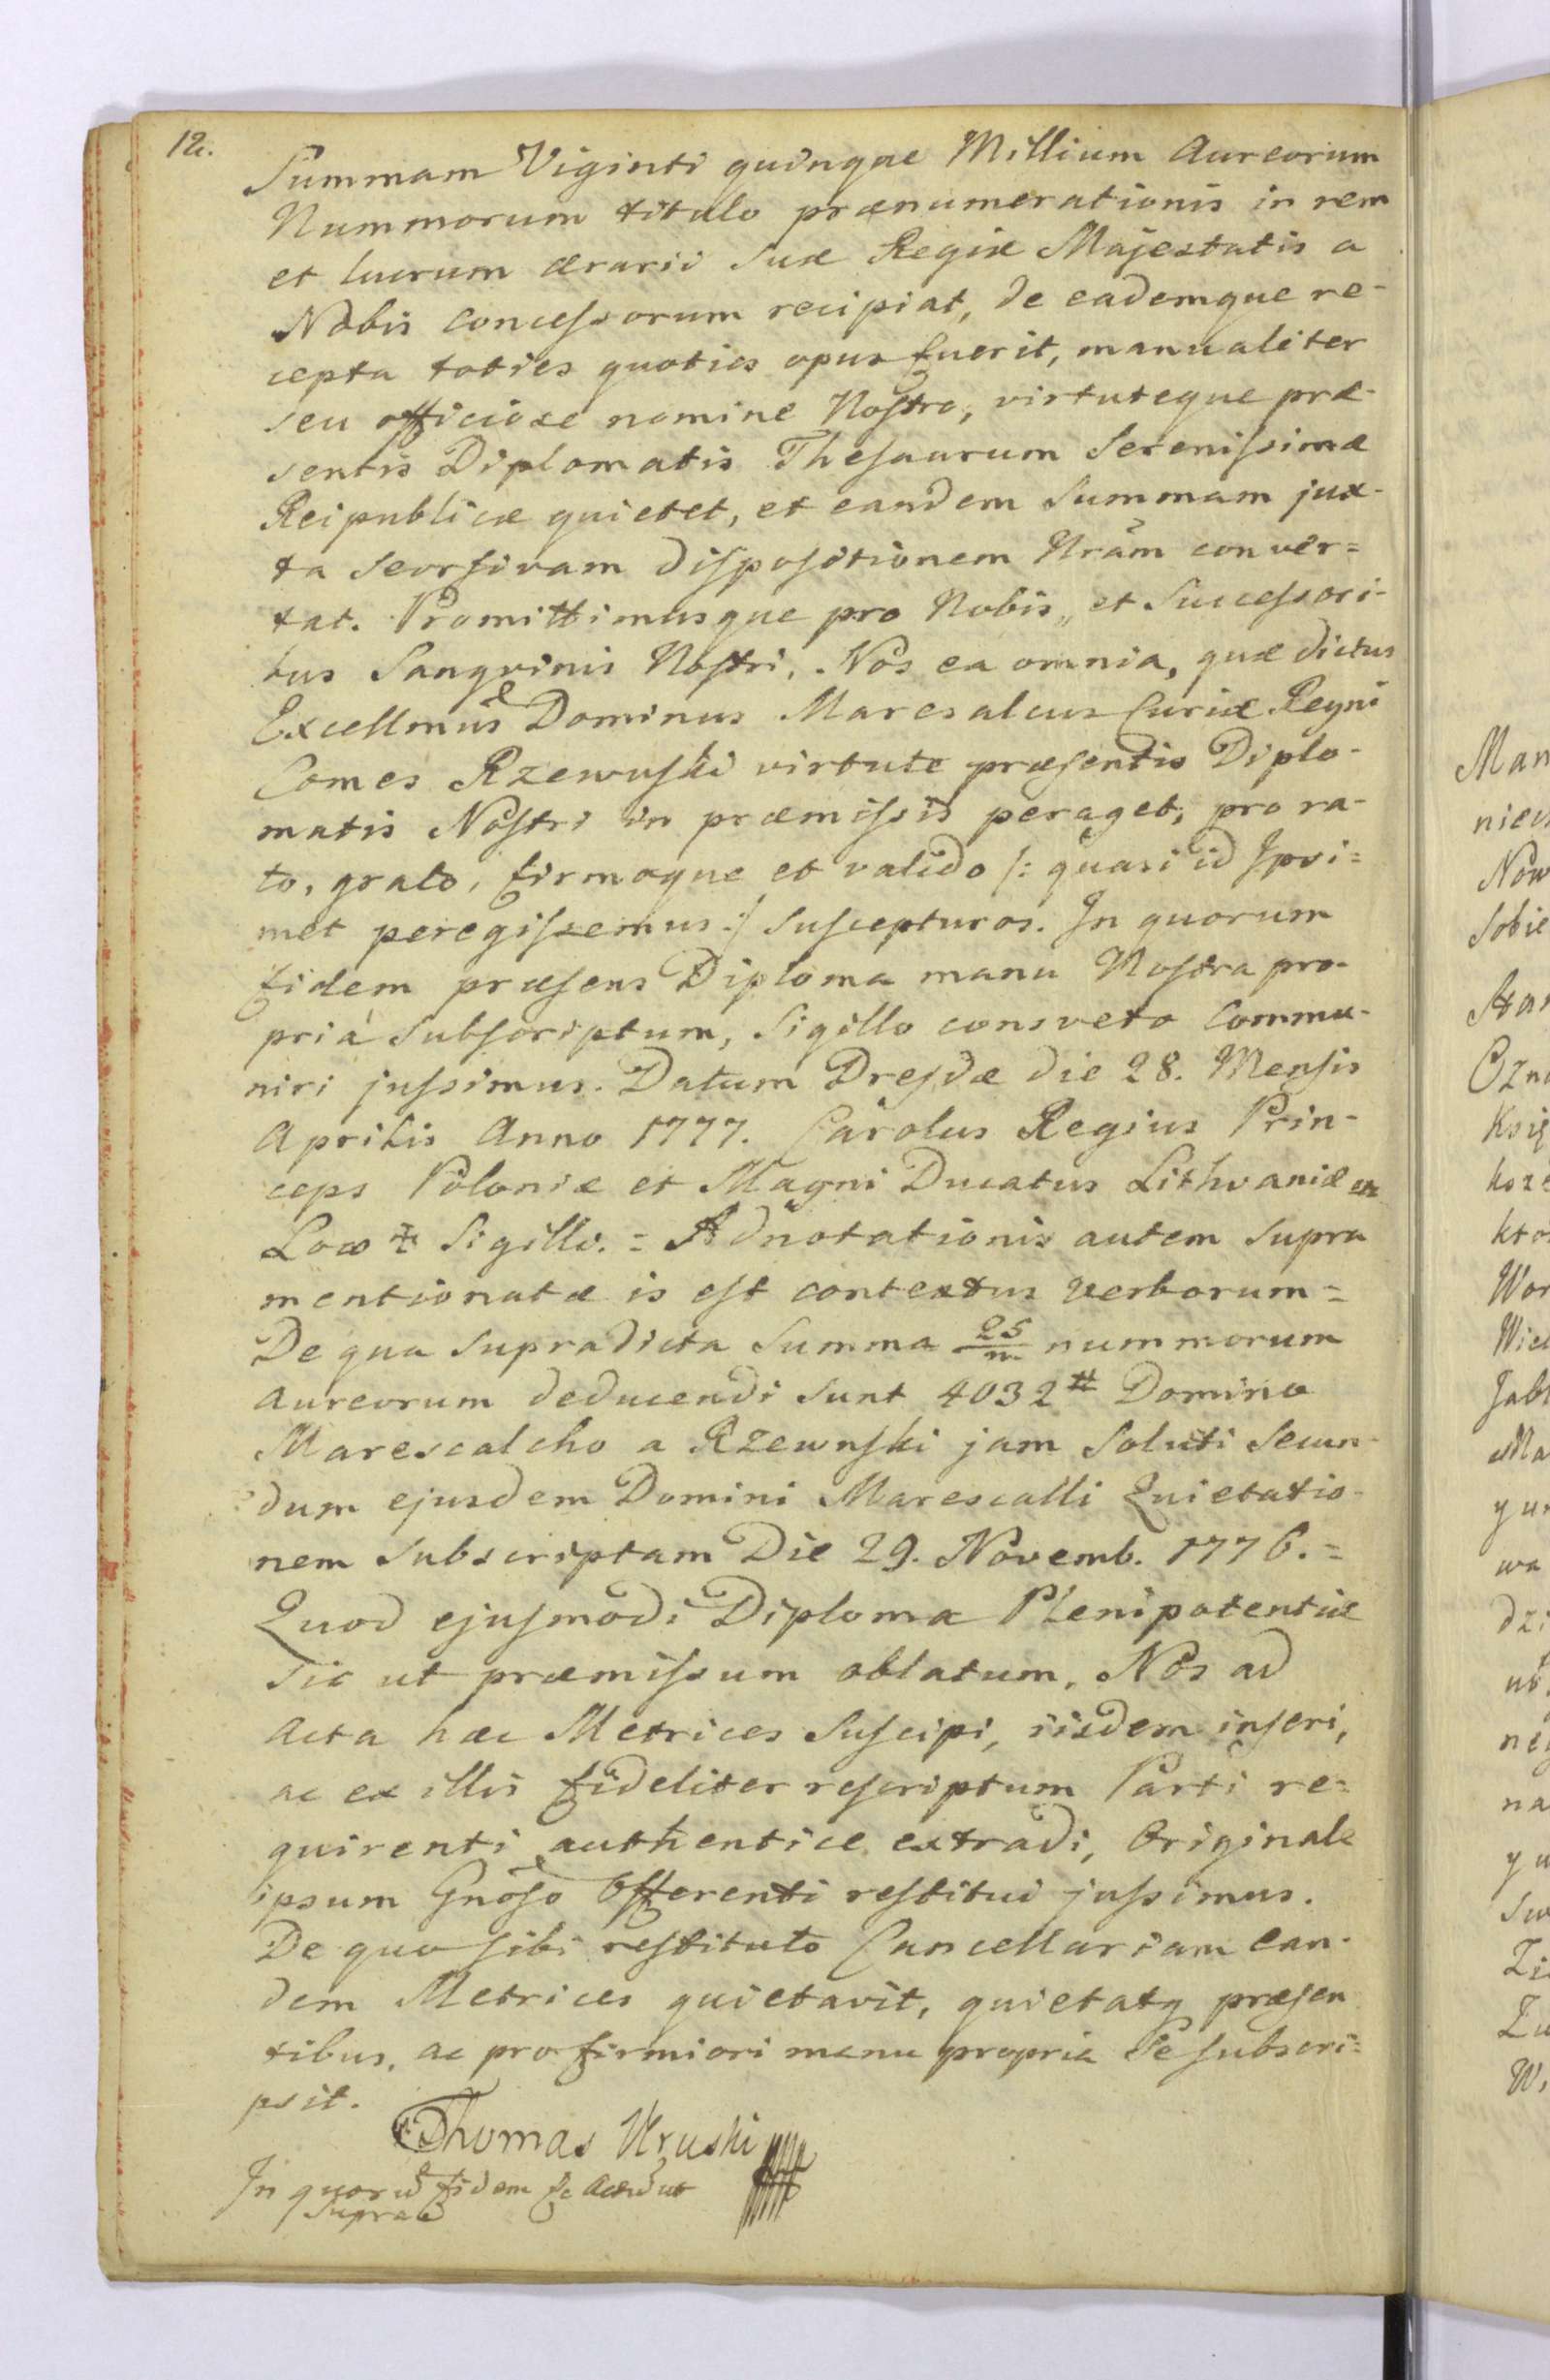 12.
Summam Viginti quinque Millium Aureorum
Nummorum titulo prænumerationis in rem
et lucrum ærarii Suæ Regiæ Majestatis a
Nobis concessorum recipiat, de eademque re-
cepta toties quoties opus fuerit, manualiter
seu officiose nomine Nostro, virtuteque præ-
sentis Diplomatis Thesaurum Serenissimæ
Reipublicæ quietet, et eandem Summam jux-
ta Seorsivam dispositionem Nrãm conver=
tat. Promittimusque pro Nobis, et Successori-
bus Sangvinis Nostri, Nos ea omnia, quæ dictus
Excellmus Dominus Maresalcus Curiæ Regni
Comes Rzewuski virtute præsentis Diplo-
matis Nostri in præmissis peraget, pro ra-
to, grato, firmoque et valido /: quasi id Ipsi=
met peregissemus :/ Suscepturos. In quorum
fidem præsens Diploma manu Nostra pro-
priâ Subscriptum, Sigillo consveto Commu-
niri jussimus. Datum Dresdæ die 28. Mensis
Aprilis Anno 1777. Carolus Regius Prin-
ceps Poloniæ et Magni Ducatus Lithvaniæ etc
Loco ✠ Sigilli. = Adnotationis autem Supra
mentionatæ is est contextus verborum =
De qua Supradicta Summa 25/m nummorum
aureorum deducendi Sunt 4032 # Domino
Marescalcho a Rzewuski jam Soluti Secun-
dum ejusdem Domini Marescalli Quietatio-
nem Subscriptam Die 29. Novemb. 1776. =
Quod ejusmodi Diploma Plenipotentiæ
sic ut præmissum oblatum, Nos ad
Acta hæc Metrices Suscipi, iisdem inseri,
ac ex illis fideliter rescriptum Parti re=
quirenti authentice extradi, Originale
ipsum Gnoso Offerenti restitui jussimus.
De quo sibi restituto Cancellariam ean-
dem Metrices quietavit, quietatq præsen
tibus, ac pro firmiori manu propria Se subscri=
psit.
Thomas Uruski
In quorũ fidem Actũ ut
Supra
Man
Now
Sobie
Ozna
Ksią
kto
Wor
wa
dzi
na